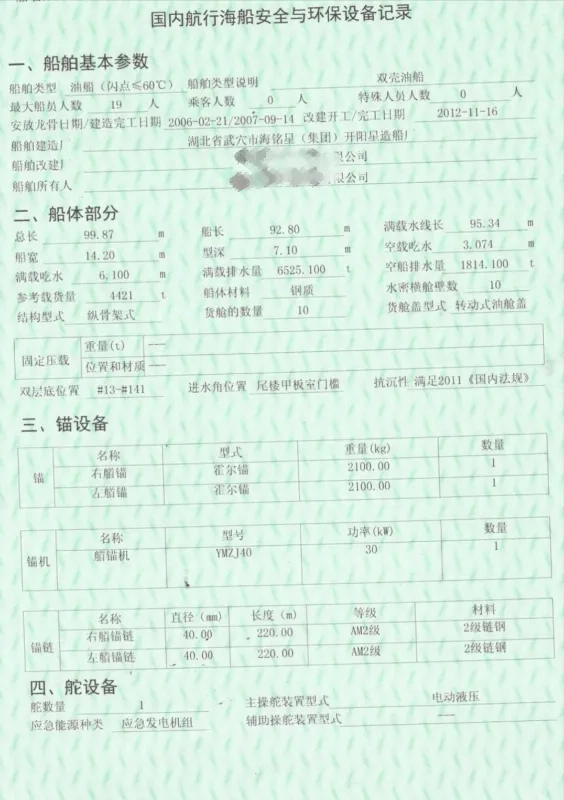 国内航行海船安全与环保设备记录
一、船舶基本参数
船舶类型 油船（闪点≤60℃） 船舶类型说明 双壳油船
最大船员人数 19 人 乘客人数 0 人 特殊人员人数 0 人
安放龙骨日期/建造完工日期 2006-02-21/2007-09-14 改建开工/完工日期 2012-11-16
船舶建造厂 湖北省武穴市海铭星（集团）开阳星造船厂
船舶改建厂 限公司
船舶所有人 限公司
二、船体部分
总长 99.87 m 船长 92.80 m 满载水线长 95.34 m
船宽 14.20 m 型深 7.10 m 空载吃水 3.074 m
满载吃水 6.100 m 满载排水量 6525.100 t 空船排水量 1814.100 t
参考载货量 4421 t 船体材料 钢质 水密横舱壁数 10
结构型式 纵骨架式 货舱的数量 10 货舱盖型式 转动式油舱盖
固定压载 重量(t) ---
位置和材质 ---
双层底位置 #13-#141 进水角位置 尾楼甲板室门槛 抗沉性 满足2011《国内法规》
三、锚设备
名称 型式 重量(kg) 数量
锚 右艏锚 霍尔锚 2100.00 1
左艏锚 霍尔锚 2100.00 1
名称 型号 功率(kW) 数量
锚机 艏锚机 YMZJ40 30 1
名称 直径（mm） 长度（m） 等级 材料
锚链 右艏锚链 40.00 220.00 AM2级 2级链钢
左艏锚链 40.00 220.00 AM2级 2级链钢
四、舵设备
舵数量 1 主操舵装置型式 电动液压
应急能源种类 应急发电机组 辅助操舵装置型式 ---